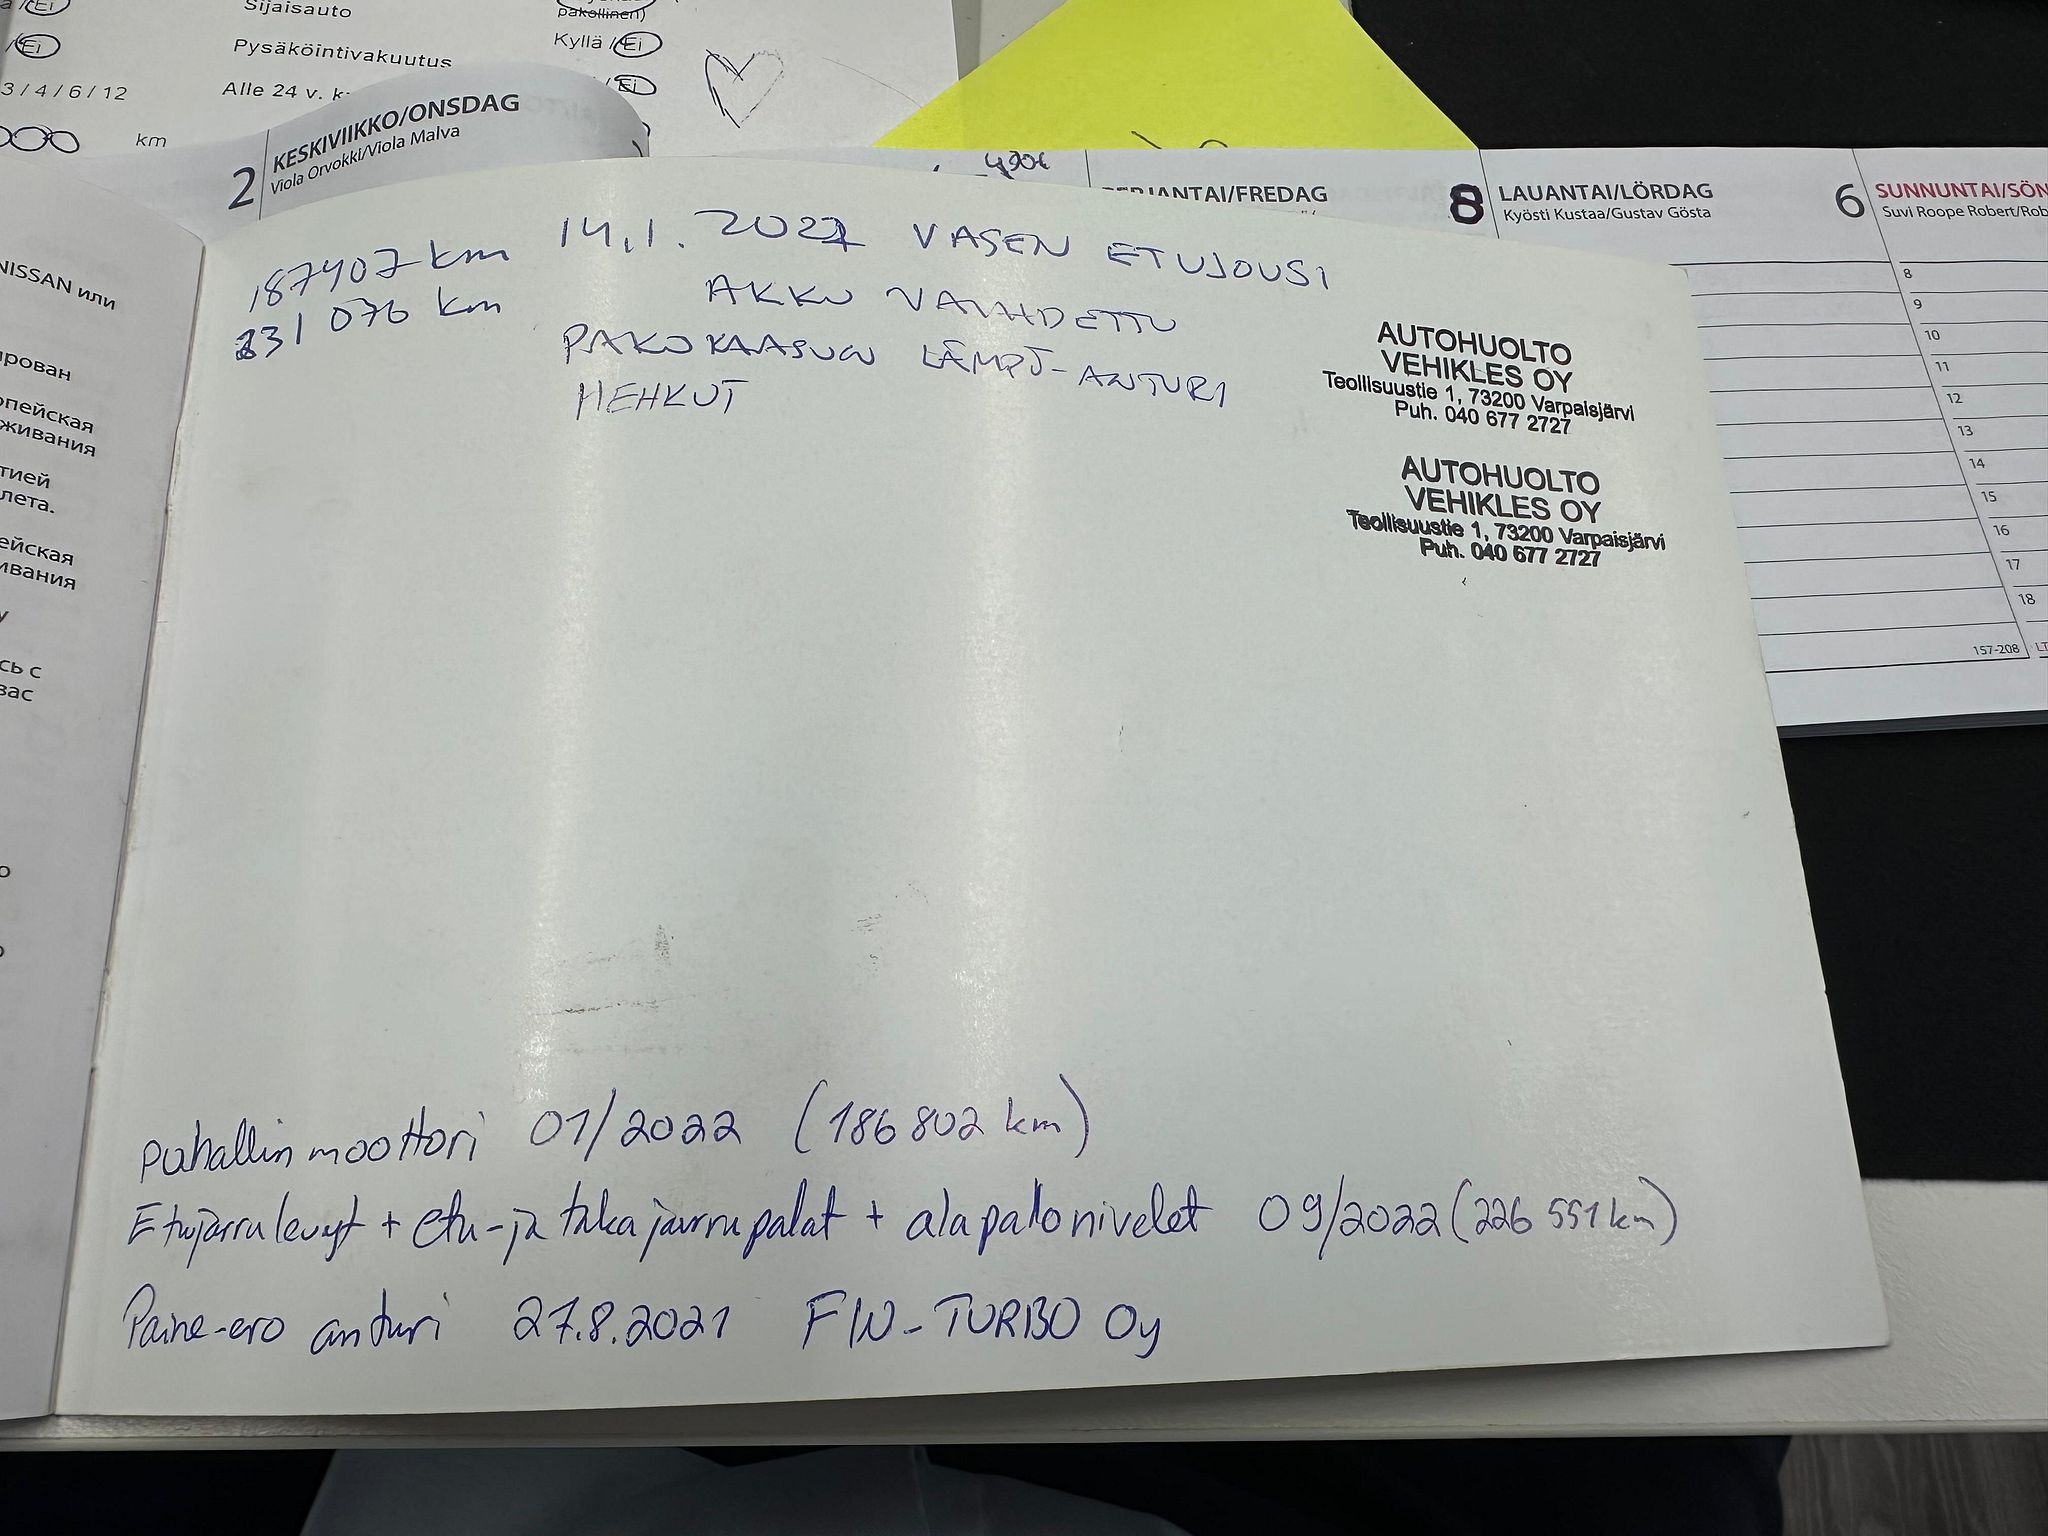 Sijaisauto
pakollinen)
Ei
Pysäköintivakuutus
Kyllä / Ei
3 / 4 / 6 / 12
Alle 24 v.
/ Ei
km
2 KESKIVIIKKO/ONSDAG
Viola Orvokki/Viola Malva
490€
PERJANTAI/FREDAG
8 LAUANTAI/LÖRDAG
Kyösti Kustaa/Gustav Gösta
6 SUNNUNTAI/SÖN
Suvi Roope Robert/Rob
8
9
10
11
12
13
14
15
16
17
18
157-208
NISSAN или
ирован
опейская
живания
тией
лета.
ейская
ивания
у
сь с
вас
187407 km 14.1.2022 VASEN ETUJOUSI
231 076 km AKKU VAIHDETTU
PAKOKAASUN LÄMPÖ-ANTURI
HEHKUT
AUTOHUOLTO
VEHIKLES OY
Teollisuustie 1, 73200 Varpaisjärvi
Puh. 040 677 2727
AUTOHUOLTO
VEHIKLES OY
Teollisuustie 1, 73200 Varpaisjärvi
Puh. 040 677 2727
puhallin moottori 01/2022 (186 802 km)
Etujarrulevyt + etu-ja takajarrupalat + alapallonivelet 09/2022 (226 551 km)
Paine-ero anturi 27.8.2021 FIN-TURBO Oy